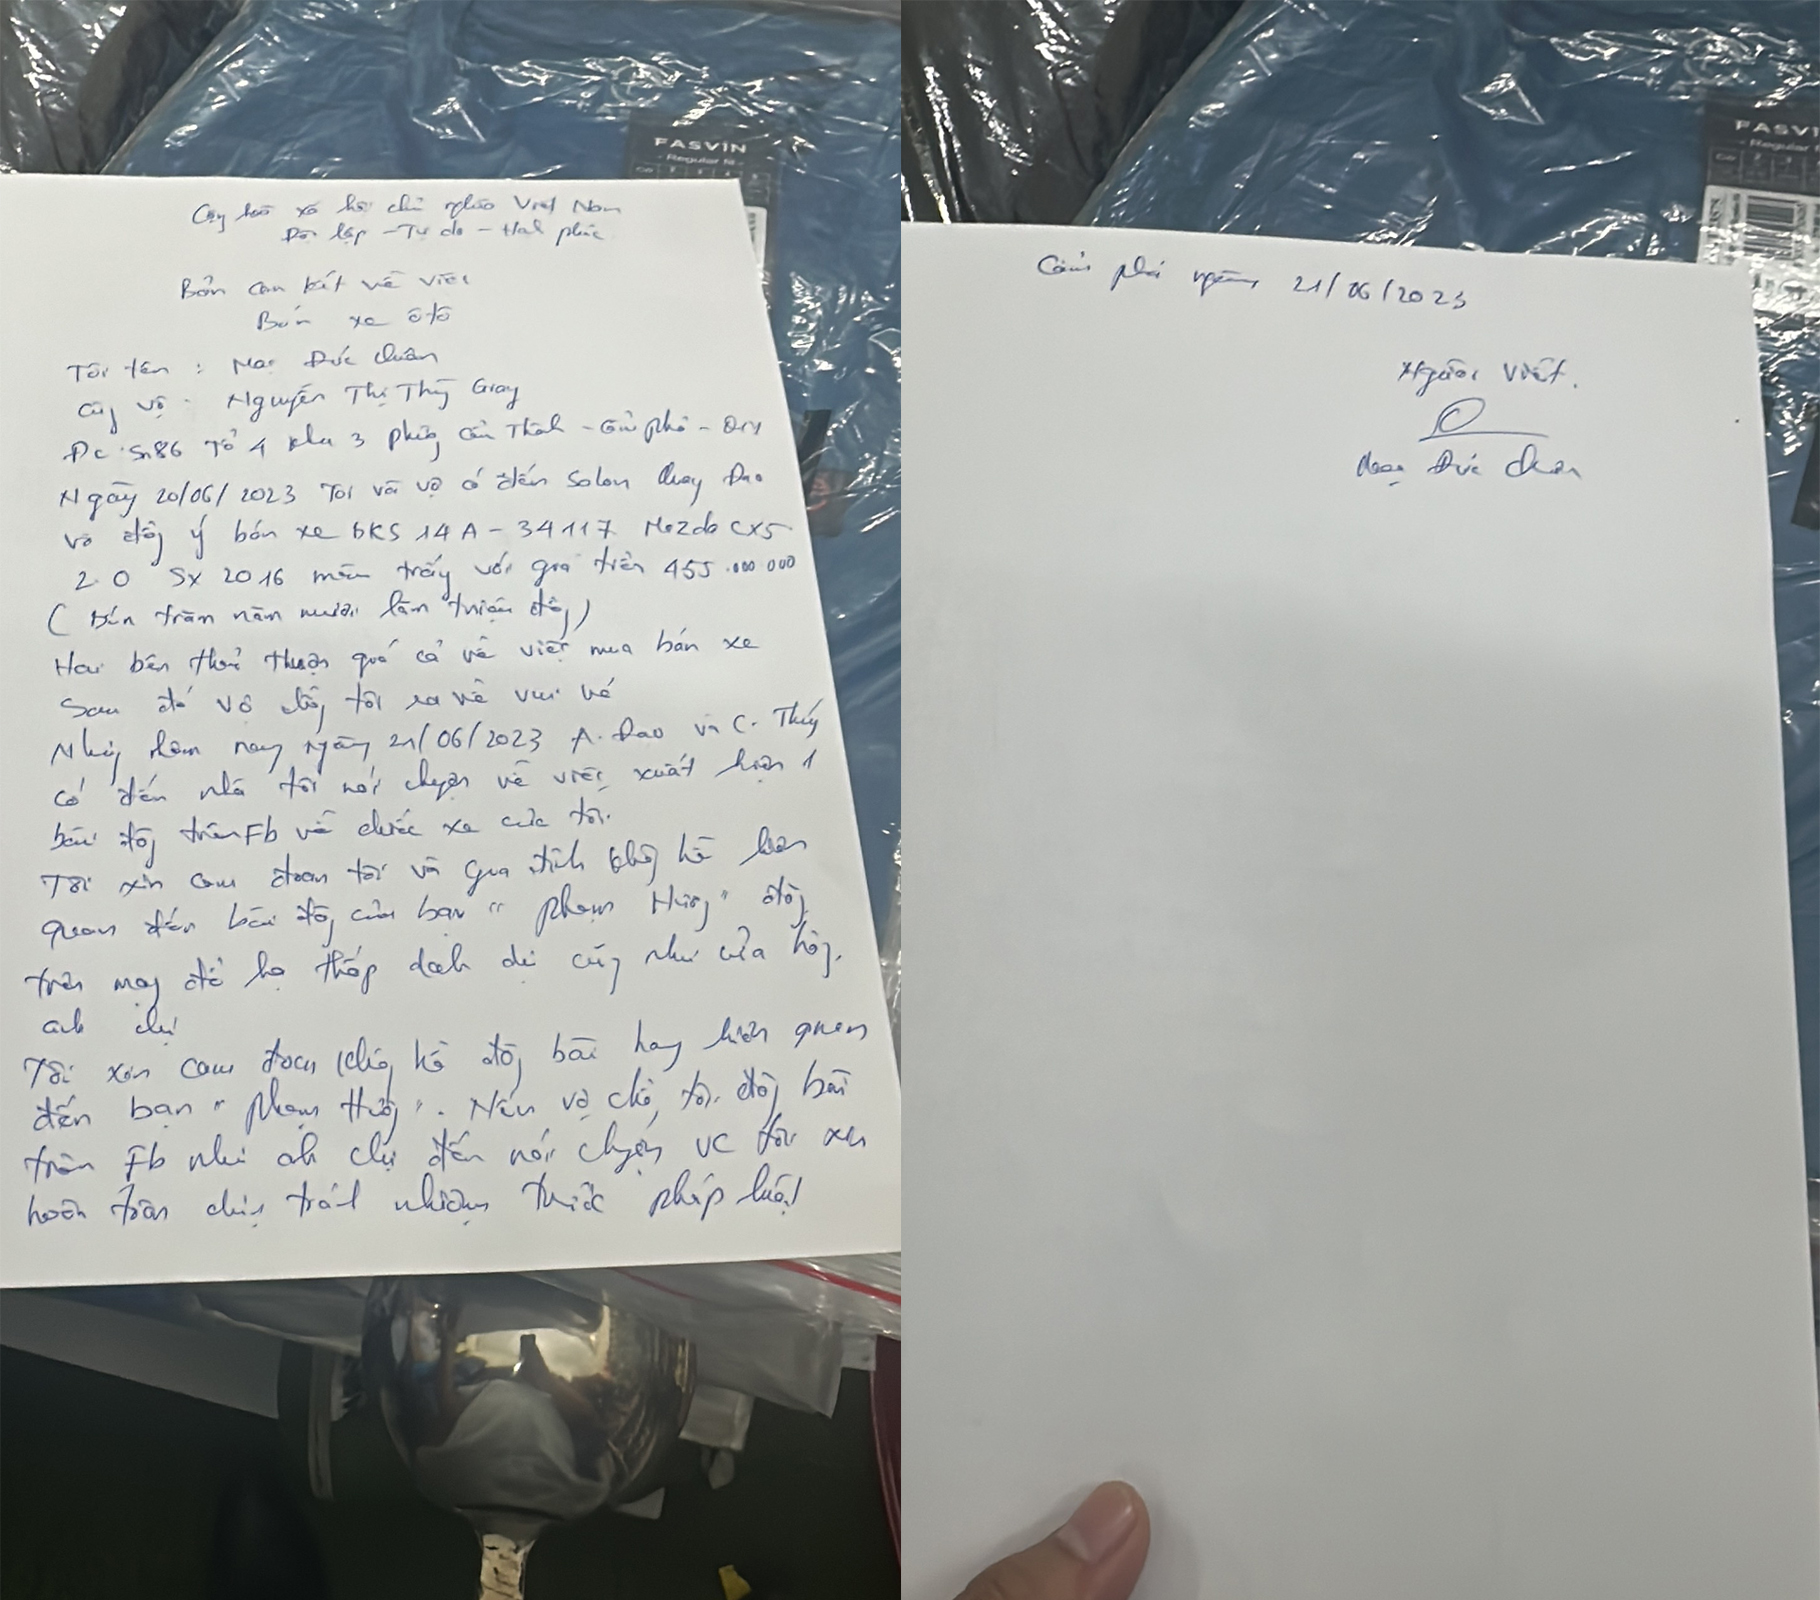 Cộng hoà xã hội chủ nghĩa Việt Nam
Độc lập - Tự do - Hạnh phúc
Bản cam kết về việc
Bán xe ôtô
Tôi tên : Mạc Đức Chuân
Cùng vợ : Nguyễn Thị Thùy Giang
Đc: Sn86 Tổ 4 khu 3 phường Cẩm Thành - Cẩm phả - QN
Ngày 20/06/2023 Tôi và vợ có đến Salon Quang Đạo
và đồng ý bán xe bKS 14A - 34117 Mazda CX5
2.0 Sx 2016 màu trắng với giá tiền 455.000.000
( Bốn trăm năm mươi lăm triệu đồng)
Hai bên thoả thuận quá cả về việc mua bán xe
Sau đó vợ chồng tôi ra về vui vẻ
Nhưng hôm nay ngày 21/06/2023 A. Đạo và C. Thúy
có đến nhà tôi nói chuyện về việc xuất hiện 1
bài đăng trên Fb về chiếc xe của tôi.
Tôi xin cam đoan tôi và gia đình không hề liên
quan đến bài đăng của bạn " Phạm Hương " đăng
trên mạng để hạ thấp danh dự cũng như cửa hàng.
anh chị
Tôi xin cam đoan không hề đăng bài hay liên quan
đến bạn " Phạm Hương ". Nếu vợ chồng tôi đăng bài
trên Fb như anh chị đến nói chuyện VC tôi xin
hoàn toàn chịu trách nhiệm trước pháp luật
FASVIN
Regular fit
Cẩm phả ngày 21/06/2023
Người viết.
Mạc Đức Chuân
FASVIN
Regular